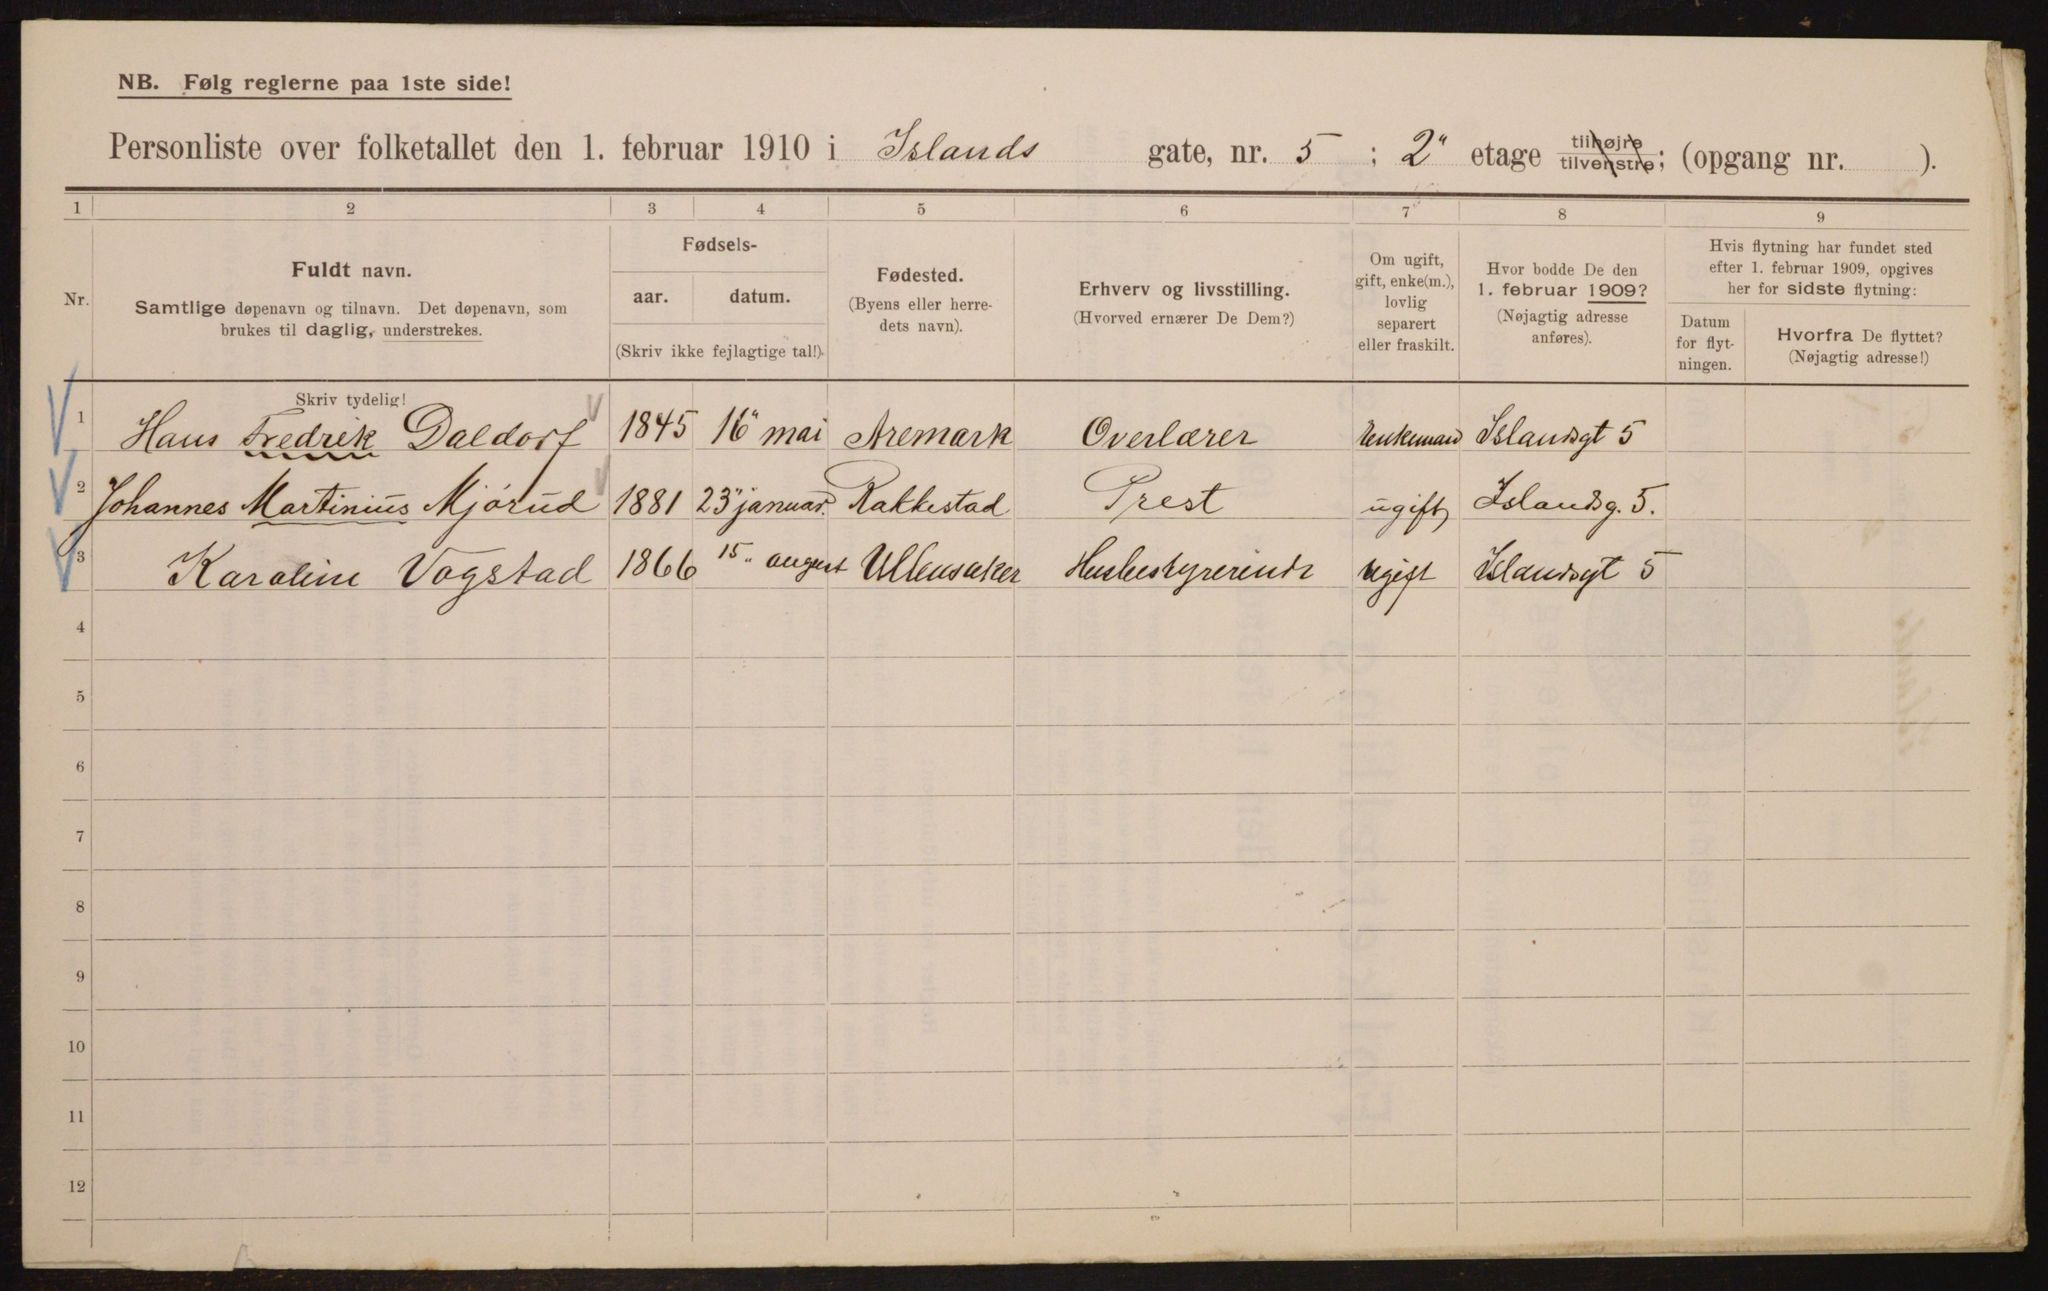 NB. Følg reglerne paa 1ste side!
Personliste over folketallet den 1. februar 1910 i Islands gate, nr. 5 ; 2" etage tilhøjre tilvenstre; (opgang nr. ).
1 2 3 4 5 6 7 8 9
Nr.
Fuldt navn.
Samtlige døpenavn og tilnavn. Det døpenavn, som
brukes til daglig, understrekes.
Fødsels-
aar. datum.
(Skriv ikke fejlagtige tal!).
Fødested.
(Byens eller herre-
dets navn).
Erhverv og livsstilling.
(Hvorved ernærer De Dem?)
Om ugift,
gift, enke(m.),
lovlig
separert
eller fraskilt.
Hvor bodde De den
1. februar 1909?
(Nøjagtig adresse
anføres).
Hvis flytning har fundet sted
efter 1. februar 1909, opgives
her for sidste flytning:
Datum
for flyt-
ningen.
Hvorfra De flyttet?
(Nøjagtig adresse!)
Skriv tydelig!
1 Hans Fredrik Daldorf 1845 16" mai Aremark Overlærer Enkemand Islandsgt 5
2 Johannes Martinius Mjørud 1881 23" januar. Rakkestad Prest ugift Islandsg. 5.
3 Karoline Vogstad 1866 15" august Ullensaker Husbestyrerinde ugift Islandsgt 5
4
5
6
7
8
9
10
11
12